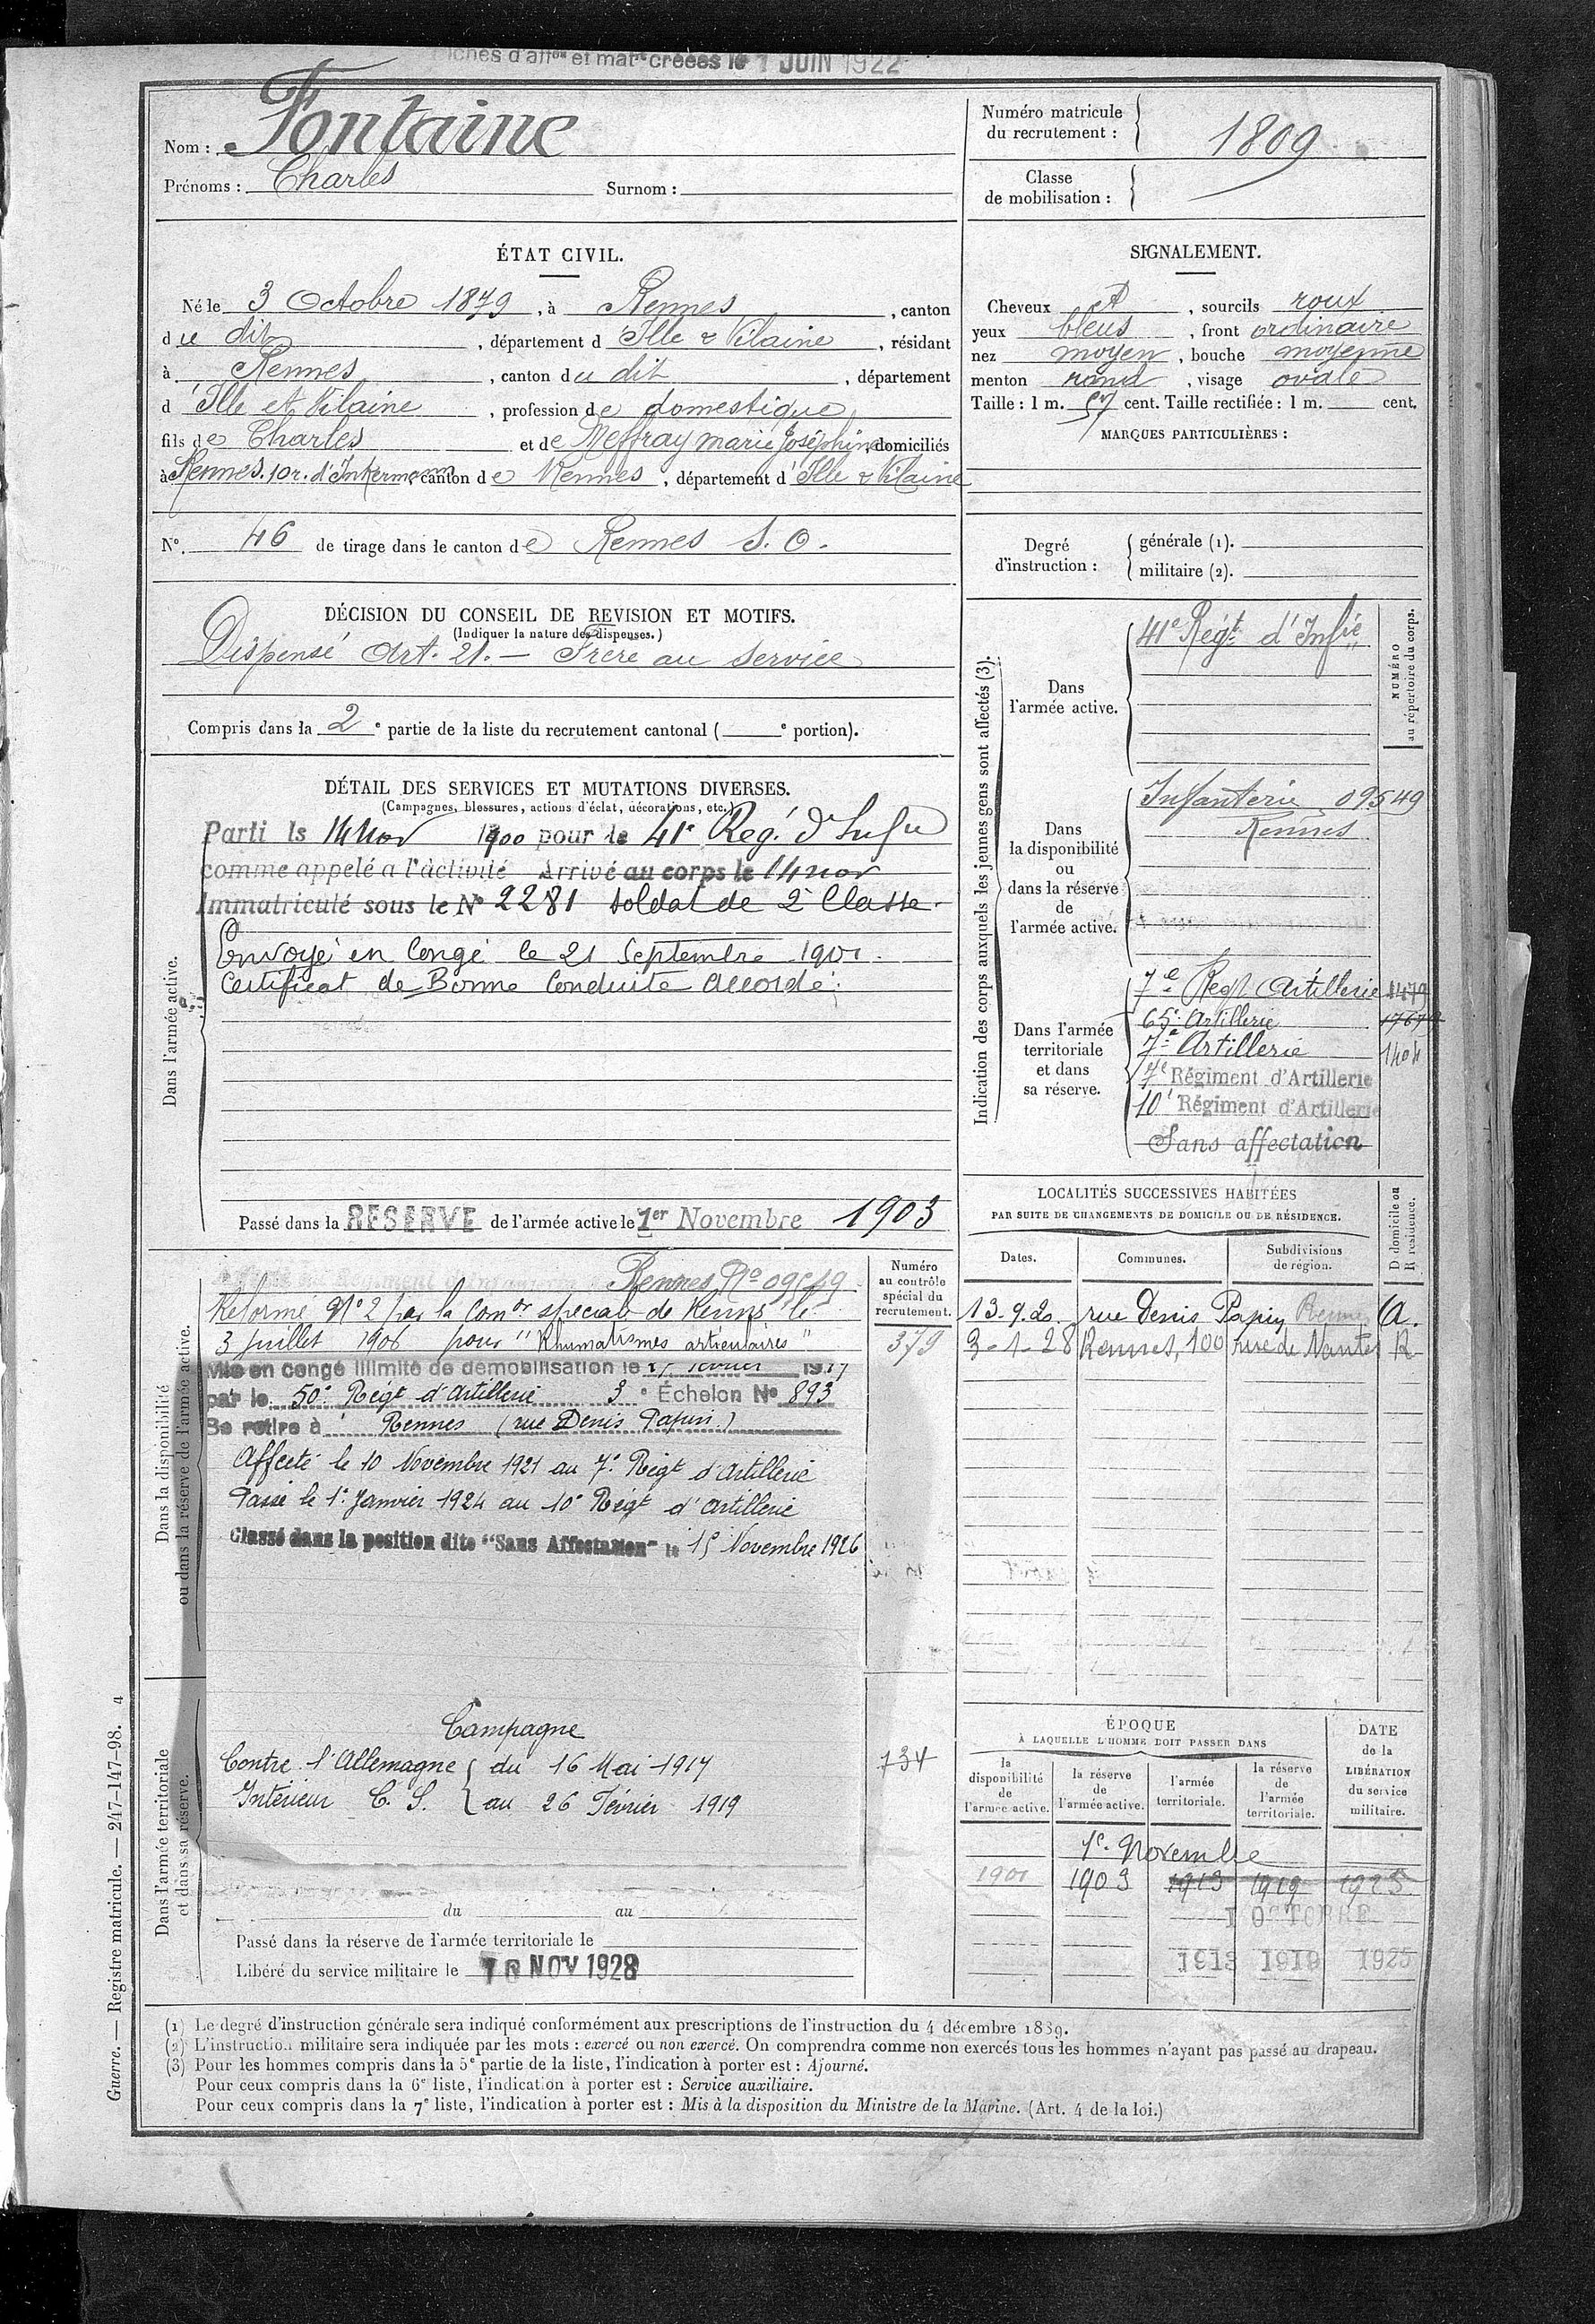 créées le 1 JUIN 1922
Nom : Fontaine
Prénoms : Charles Surnom :
Numéro matricule
du recrutement :
1809
Classe
de mobilisation :
ÉTAT CIVIL.
Né le 3 Octobre 1879, à Rennes, canton
du dit, département d'Ille & Vilaine, résidant
à Rennes, canton du dit, département
d'Ille et Vilaine, profession de domestique
fils de Charles et de Meffray marie Joséphine, domiciliés
à Rennes. 10 r. d'Inkermann, canton de Rennes, département d'Ille & Vilaine
N°. 46 de tirage dans le canton de Rennes S. O.
SIGNALEMENT.
Cheveux , sourcils roux
yeux bleus, front ordinaire
nez moyen, bouche moyenne
menton rond, visage ovale
Taille : 1 m. 57 cent. Taille rectifiée : 1 m. cent.
MARQUES PARTICULIÈRES :
Degré
d'instruction :
générale (1).
militaire (2).
DÉCISION DU CONSEIL DE REVISION ET MOTIFS.
(Indiquer la nature des dispenses.)
Dispensé Art. 21. — Frère au service
Compris dans la 2e partie de la liste du recrutement cantonal ( e portion).
DÉTAIL DES SERVICES ET MUTATIONS DIVERSES.
(Campagnes, blessures, actions d'éclat, décorations, etc.)
Dans l'armée active.
Parti le 14 nov 1900 pour le 41e Reg. d'Infie
comme appelé à l'activité Arrivé au corps le 14 nov
Immatriculé sous le N° 2281 soldat de 2e Classe.
Envoyé en Congé le 21 Septembre 1901.
Certificat de Bonne Conduite Accordé.
Passé dans la RESERVE de l'armée active le 1er Novembre 1903
Indication des corps auxquels les jeunes gens sont affectés (3).
NUMÉRO
au répertoire du corps.
Dans
l'armée active.
41e Régt d'Infie
Dans
la disponibilité
ou
dans la réserve
de
l'armée active.
Infanterie 09549
Rennes
Dans l'armée
territoriale
et dans
sa réserve.
7e Regt Artillerie
65e Artillerie
7e Artillerie 1404
7e Régiment d'Artillerie
10e Régiment d'Artillerie
Sans affectation
Dans la disponibilité
ou dans la réserve de l'armée active.
Numéro
au contrôle
spécial du
recrutement.
Rennes No 09549
Réformé No 2 par la Comon spéciale de Rennes le
3 juillet 1906 pour "Rhumatismes articulaires"
379
Mis en congé illimité de démobilisation le
par le 50e Régt d'Artillerie 3e Échelon N° 893
Se retire à Rennes (rue Denis Papin)
Affecté le 10 Novembre 1921 au 7e Régt d'Artillerie
Passé le 1er Janvier 1924 au 10e Régt d'Artillerie
Classé dans la position dite "Sans Affectation" le 15 Novembre 1926
Dans l'armée territoriale
et dans sa réserve.
Campagne
Contre l'Allemagne { du 16 Mai 1917
Intérieur C. S. { au 26 Février 1919
734
du au
Passé dans la réserve de l'armée territoriale le
Libéré du service militaire le NOV 1928
LOCALITÉS SUCCESSIVES HABITÉES
PAR SUITE DE CHANGEMENTS DE DOMICILE OU DE RÉSIDENCE.
D domicile ou
R résidence.
Dates. Communes. Subdivisions
de région.
13.9.20. rue Denis Papin Rennes
3-1-28 Rennes, 100 rue de Nantes R
ÉPOQUE
À LAQUELLE L'HOMME DOIT PASSER DANS
DATE
de la
LIBÉRATION
du service
militaire.
la
disponibilité
de
l'armée active.
la réserve
de
l'armée active.
l'armée
territoriale.
la réserve
de
l'armée
territoriale.
1er Novembre
1901 1903 1913 1919 1925
1 OCTOBRE
1913 1919 1925
(1) Le degré d'instruction générale sera indiqué conformément aux prescriptions de l'instruction du 4 décembre 1889.
(2) L'instruction militaire sera indiquée par les mots : exercé ou non exercé. On comprendra comme non exercés tous les hommes n'ayant pas passé au drapeau.
(3) Pour les hommes compris dans la 5e partie de la liste, l'indication à porter est : Ajourné.
Pour ceux compris dans la 6e liste, l'indication à porter est : Service auxiliaire.
Pour ceux compris dans la 7e liste, l'indication à porter est : Mis à la disposition du Ministre de la Marine. (Art. 4 de la loi.)
Guerre. — Registre matricule. — 247-147-98. 4